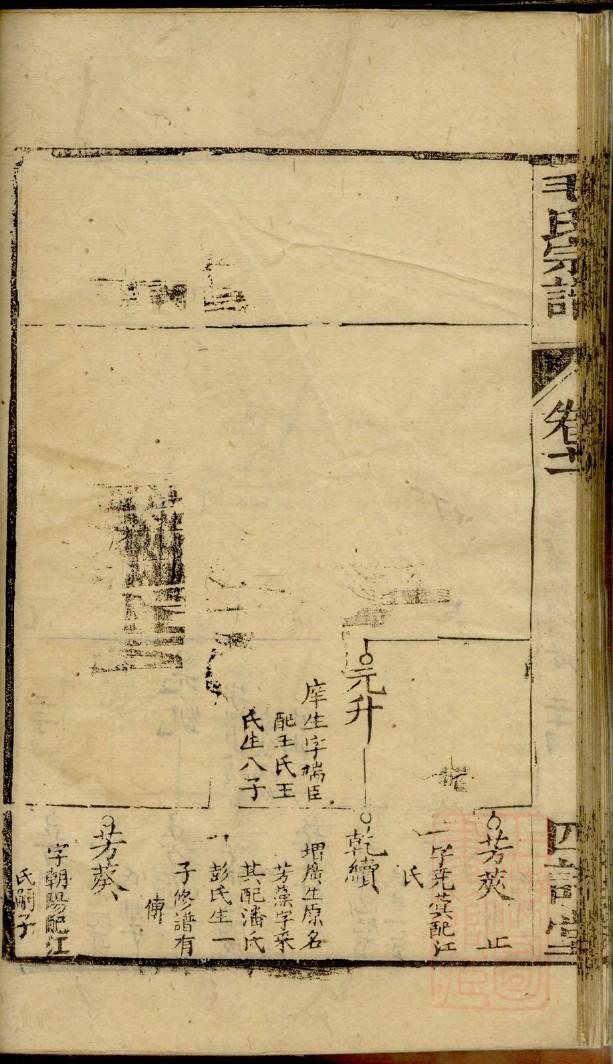 氏宗譜
卷十一
芳莢 止
字堯蓂配江
氏
元升
庠生字端臣
配王氏王
氏生八子
乾續
增廣生原名
芳藻字采
其配潘氏
彭氏生一
子修譜有
傳
芳葵
字朝陽配江
氏嗣子